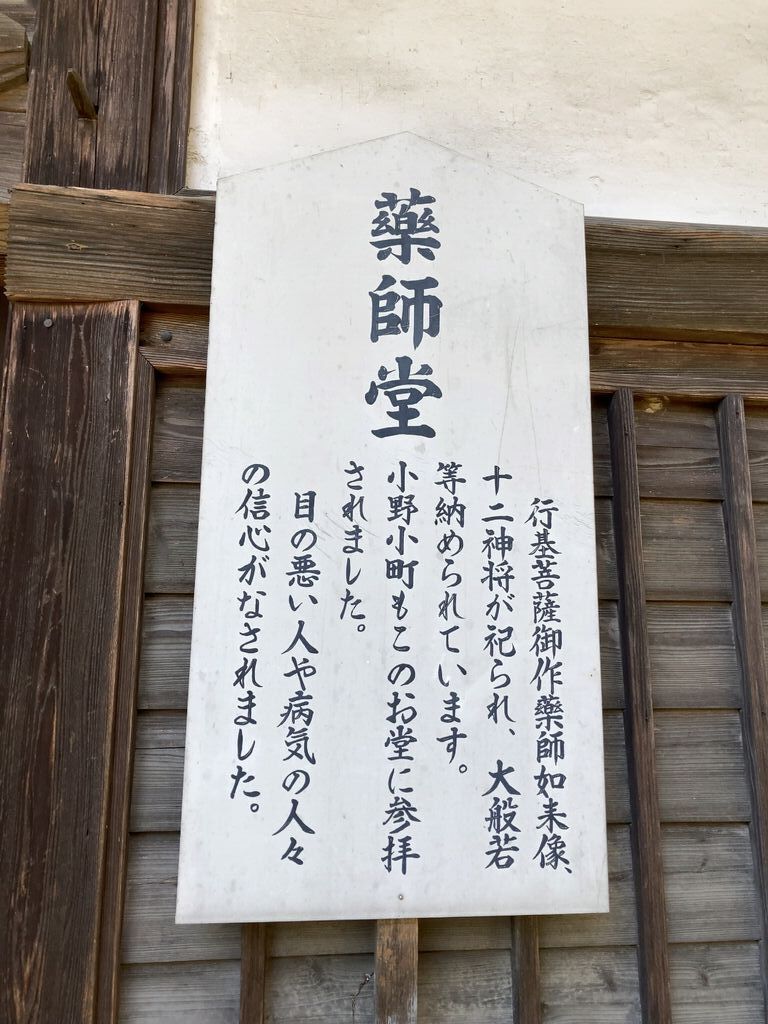 藥師堂
行基菩薩御作藥師如来像、
十二神将が祀られ、大般若
等納められています。
小野小町もこのお堂に参拝
されました。
目の悪い人や病気の人々
の信心がなされました。